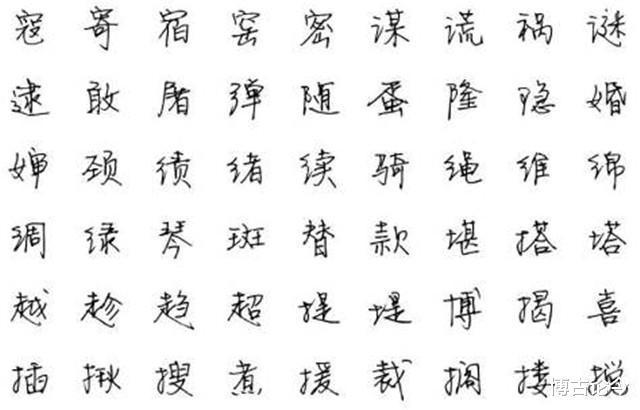 寇 寄 宿 窑 密 谋 谎 祸 谜
逮 敢 屠 弹 随 蛋 隆 隐 婚
婶 颈 绩 绪 续 骑 绳 维 绵
绸 绿 琴 斑 替 款 堪 搭 塔
越 趁 趋 超 提 堤 博 揭 喜
插 揪 搜 煮 援 裁 搁 搂 搅